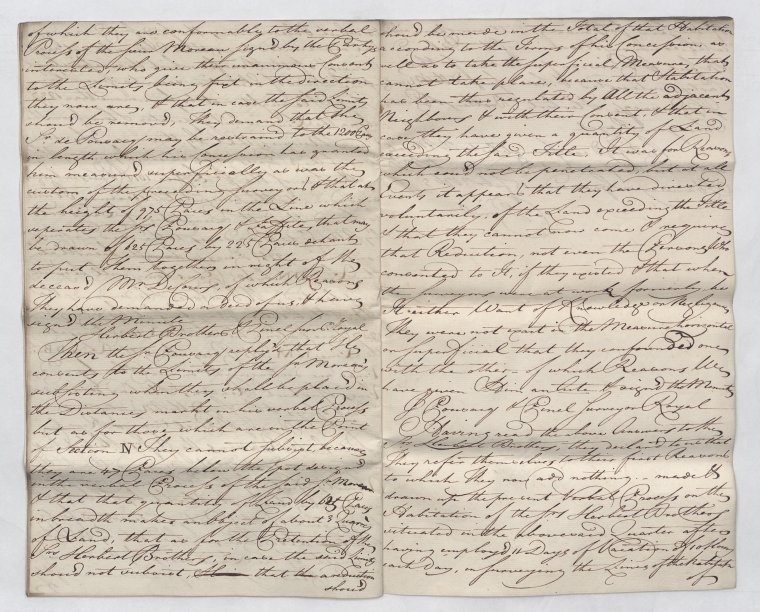 of which they are conformably to the verbal
Process of the Sieur Moreau sign'd by the Partys
interested, who give their unanimous Consent
to the Limits being fixt in the direction
they now are, & that in case the said Limits
should be remov'd, They demand that the
Sr. de Pouvacy may be restrained to the 1200 Paces
in length which his Concession has granted
him measured superficially as was the
custom of the preceding Surveyors, & that at
the height of 975 Paces in the Line which
separates the Srs Pouvacy & Lafite, that may
be drawn of 125 Paces by 225 Paces
to put them together in right of the
deceas'd Mr. of which Reasons
They have demanded a Deed of us, & have
sign'd the Minute
Herbert Brothers & Pinel Surv. Royal
Then the Sr. Pouvacy replys that He
consents to the Limits of the Sr. Moreau's
subsisting when they shall be placed in
the Distances markt in his verbal Process
but as for those which are in the Point
of Section N. They cannot subsist because
they are 47 Paces below the spot design'd
in the verbal Process of the said Sr. Moreau
& that that quantity of Land by Paces
in breadth makes an object of about 3 Quarrés
of Land, that as for the Pretention of the
Srs Herbert Brothers, in case the said Limits
should not subsist, that the reduction
should
should be made in the Total of that Habitation
according to the Terms of his Concession, as
well as to take the superficial Measure, that
cannot take place, because that Habitation
has been thus regulated by All the adjacents
Neighbours & with their Consent, & that in
case they have given a quantity of Land
exceeding the said Title, It was for Reasons
which cou'd not be penetrated, but at all
Events it appears that they have divested
voluntarily, of the Land exceeding the Title
& that they cannot now come & require
that Reduction, not even the Persons who
consented to It, if they existed & that when
the Surveyors were at work formerly, be
It either Want of Knowledge or Negligence
They were not expert in the Measure horizontal
or superficial that they confounded one
with the other, of which Reasons We
have given Him an Acte & sign'd the Minute
G Pouvacy & Pinel Surveyor Royal
Having read the above Answers to the
Srs Herbert Brothers, they declar'd to us that
They refer themselves to their first Reasons
to which They now add nothing.. made &
drawn up the present Verbal Process on the
Habitation of the Srs Herbert Brothers
situated in the abovesaid Quarter after
having employ'd Days of Vacation
each Day, in surveying the Lines of the Habitat.
of